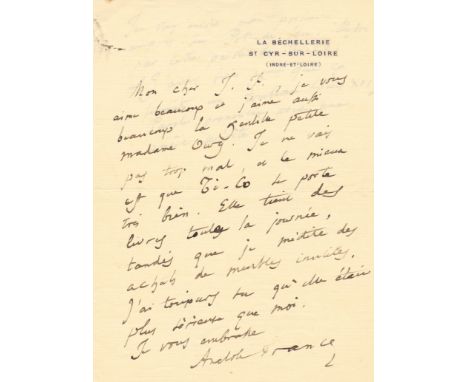 LA BÉCHELLERIE
ST CYR-SUR-LOIRE
(INDRE-ET-LOIRE)
Mon cher J. J., je vous
aime beaucoup et j'aime aussi
beaucoup la gentille petite
madame
Je ne vais
pas trop mal, et le mieux
est que Ti-Co se porte
très bien. Elle tient des
livres toute la journée,
tandis que je médite des
achats de meubles inutiles.
J'ai toujours su qu'elle était
plus sérieuse que moi.
Je vous embrasse
Anatole France